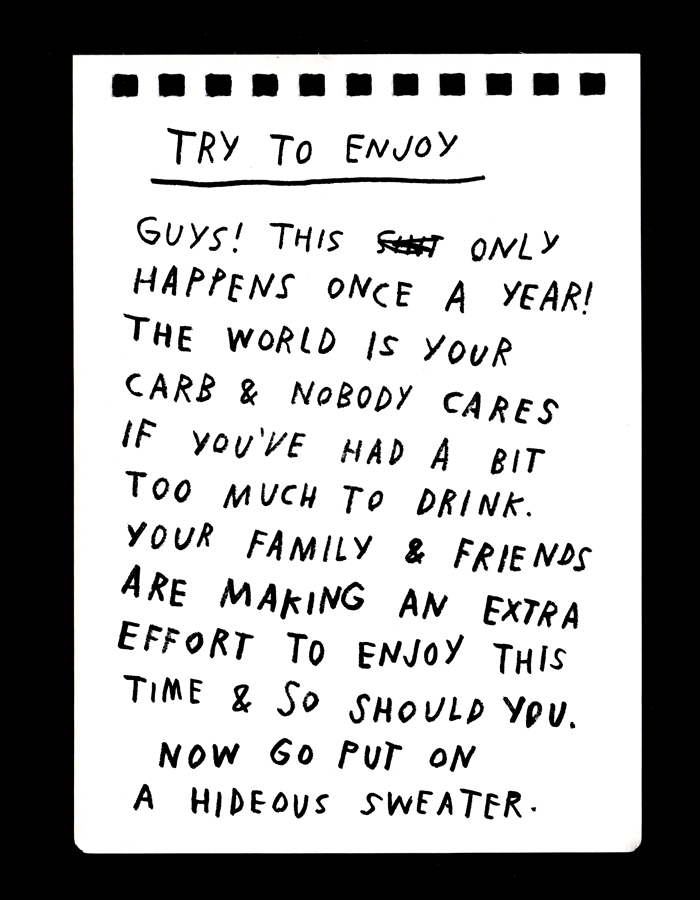 TRY TO ENJOY
GUYS! THIS ONLY
HAPPENS ONCE A YEAR!
THE WORLD IS YOUR
CARB & NOBODY CARES
IF YOU'VE HAD A BIT
TOO MUCH TO DRINK.
YOUR FAMILY & FRIENDS
ARE MAKING AN EXTRA
EFFORT TO ENJOY THIS
TIME & SO SHOULD YOU.
NOW GO PUT ON
A HIDEOUS SWEATER.